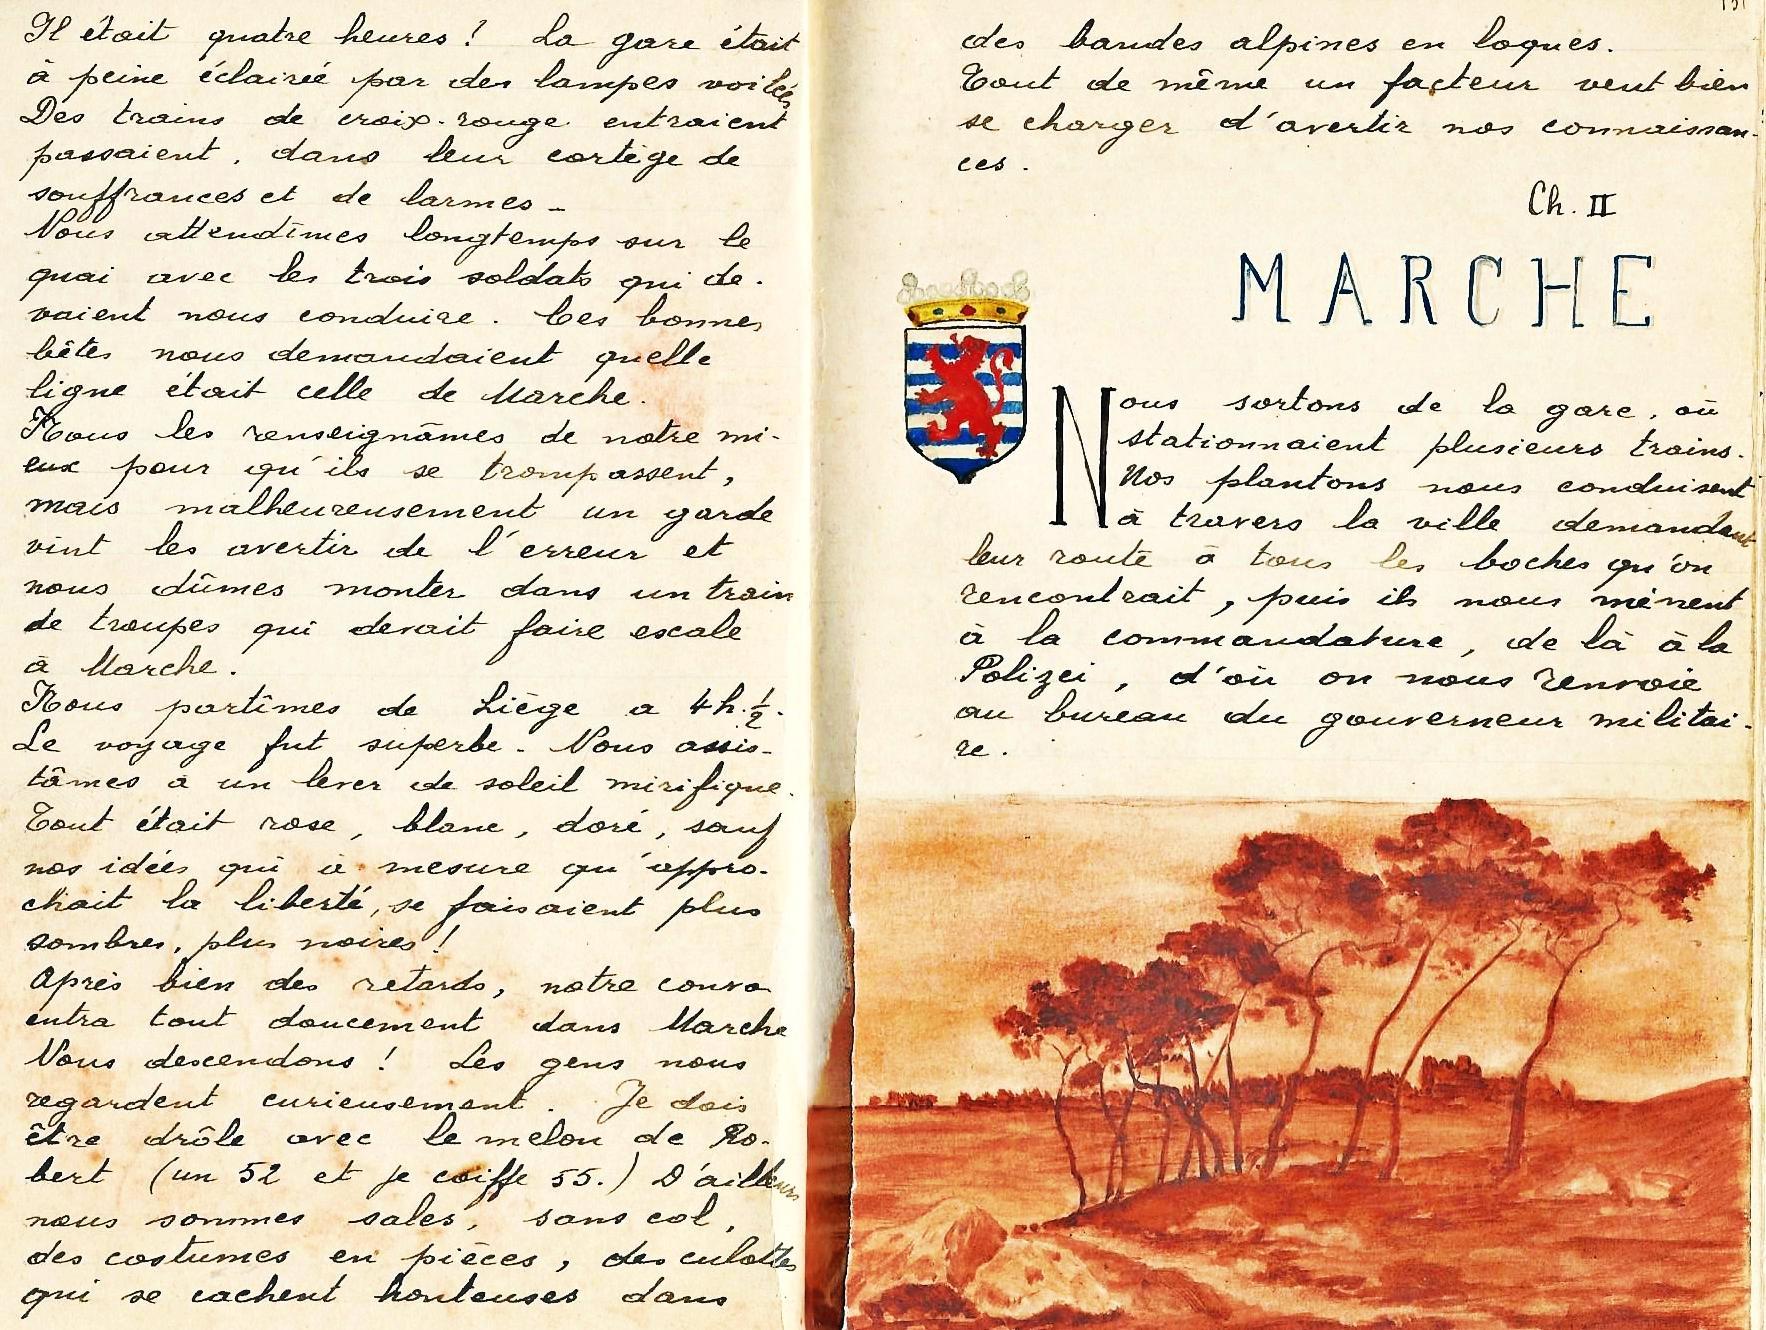 Il était quatre heures ! La gare était
à peine éclairée par des lampes voilées
Des trains de croix-rouge entraient
passaient, dans leur cortège de
souffrances et de larmes -
Nous attendîmes longtemps sur le
quai avec les trois soldats qui de-
vaient nous conduire. Ces bonnes
bêtes nous demandaient quelle
ligne était celle de Marche.
Nous les renseignâmes de notre mi-
eux pour qu'ils se trompassent,
mais malheureusement un garde
vint les avertir de l'erreur et
nous dûmes monter dans un train
de troupes qui devait faire escale
à Marche.
Nous partîmes de Liège a 4h. ½.
Le voyage fut superbe. Nous assis-
tâmes à un lever de soleil mirifique.
Tout était rose, blanc, doré, sauf
nos idées qui à mesure qu'appro-
chait la liberté, se faisaient plus
sombres, plus noires !
Après bien des retards, notre convo
entra tout doucement dans Marche
Nous descendons ! Les gens nous
regardent curieusement. Je dois
être drôle avec le melon de Ro-
bert (un 52 et je coiffe 55.) D'ailleurs
nous sommes sales, sans col,
des costumes en pièces, des culottes
qui se cachent honteuses dans
des bandes alpines en loques.
Tout de même un facteur veut bien
se charger d'avertir nos connaissan-
ces.
Ch. II
MARCHE
Nous sortons de la gare, où
stationnaient plusieurs trains.
Nos plantons nous conduisent
à travers la ville demandant
leur route à tous les boches qu'on
rencontrait, puis ils nous mènent
à la commandature, de là à la
Polizei, d'où on nous renvoie
au bureau du gouverneur militai-
re.